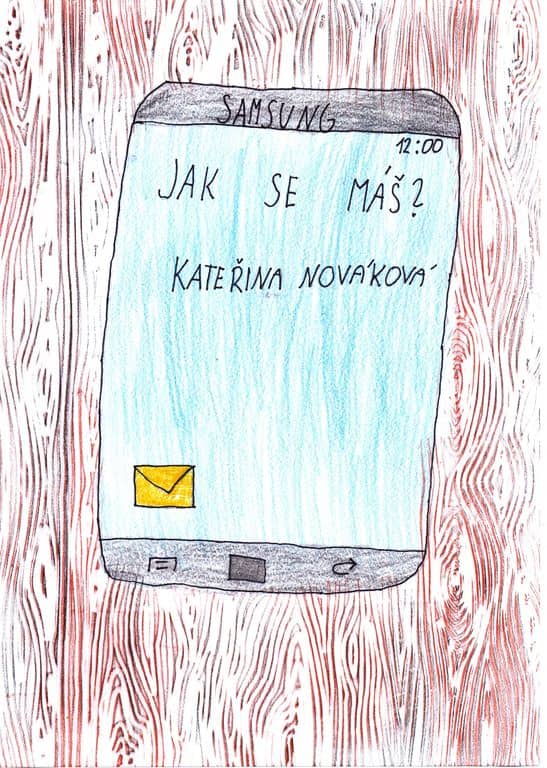 SAMSUNG
12:00
JAK SE MÁŠ?
KATEŘINA NOVÁKOVÁ